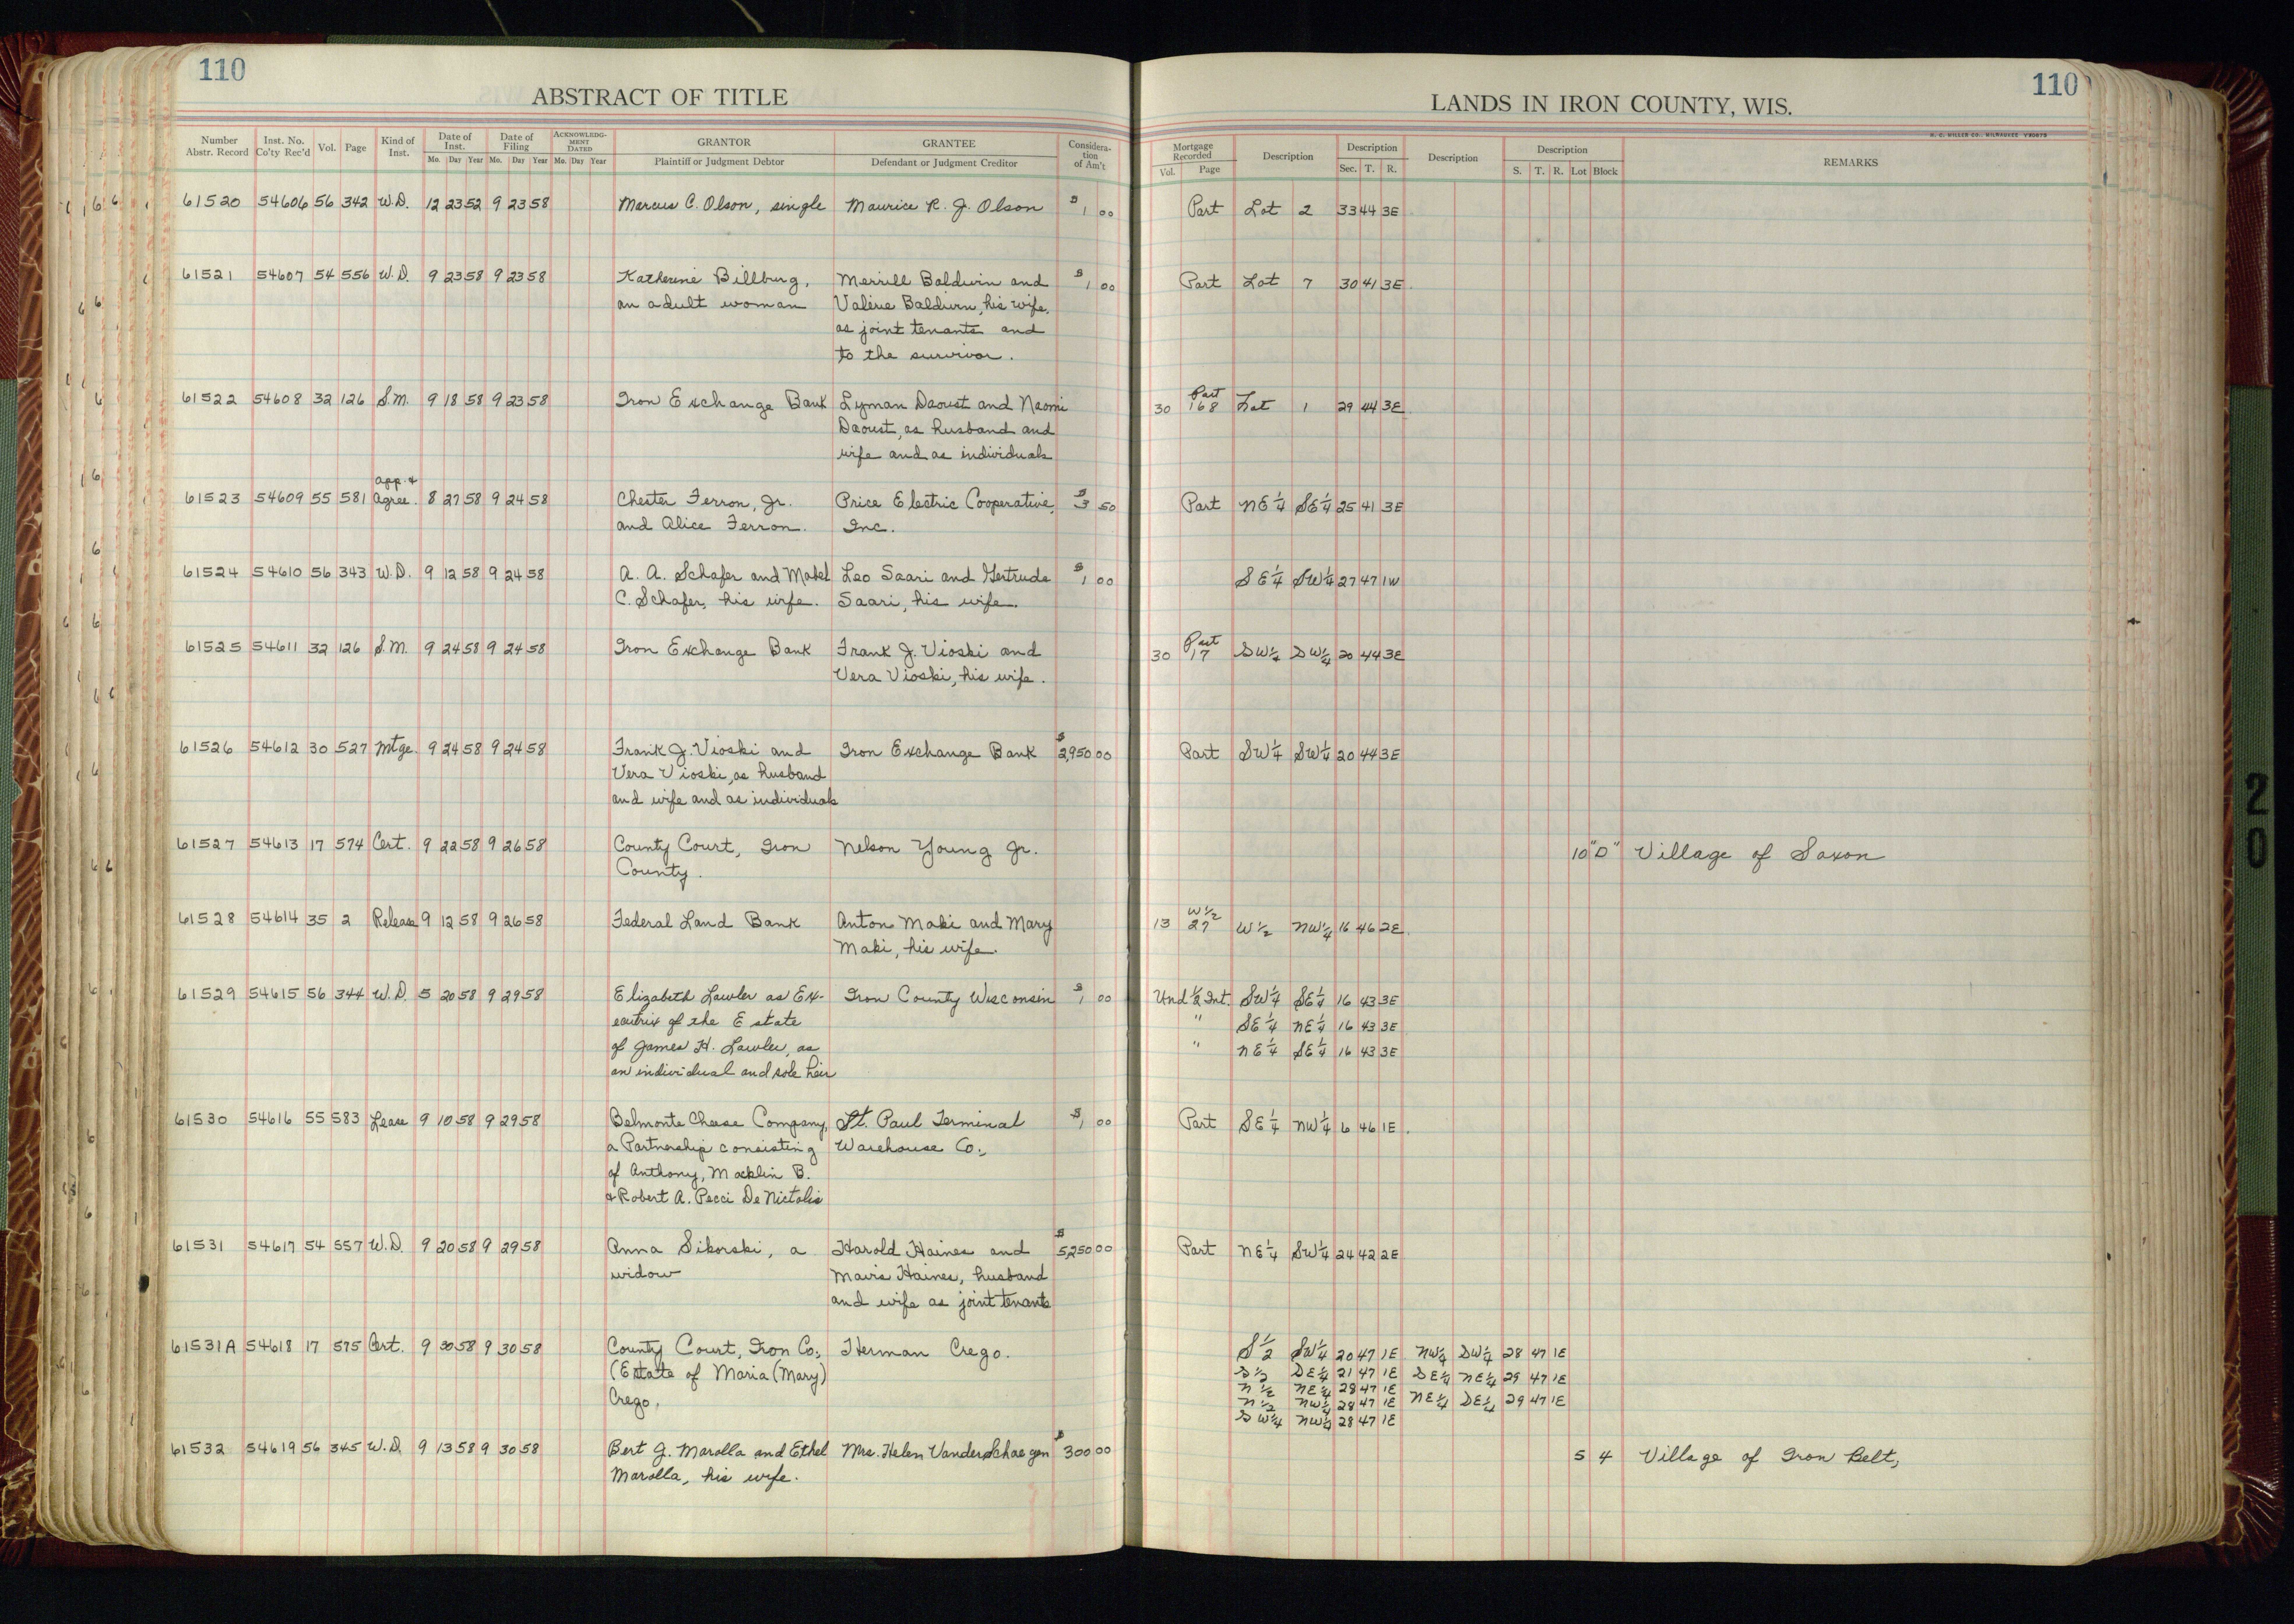 110
ABSTRACT OF TITLE
Number Abstr. Record Inst. No. Co'ty Rec'd Vol. Page Kind of Inst. Date of Inst. Mo. Day Year Date of Filing Mo. Day Year ACKNOWLEDGMENT DATED Mo. Day Year GRANTOR Plaintiff or Judgment Debtor GRANTEE Defendant or Judgment Creditor Consideration of Am't
110
LANDS IN IRON COUNTY, WIS.
H. C. MILLER CO., MILWAUKEE
Mortgage Recorded Vol. Page Description Description Sec. T. R. Description Description S. T. R. Lot Block REMARKS
61520 54606 56 342 W.D. 12 23 52 9 23 58 Marcus C. Olson, single Maurice R. J. Olson $1 00 Part Lot 2 33 44 3E
61521 54607 54 556 W.D. 9 23 58 9 23 58 Katherine Billburg, Merrill Baldwin and $1 00 Part Lot 7 30 41 3E
an adult woman Valerie Baldwin, his wife,
as joint tenants and
to the survivor.
61522 54608 32 126 S.M. 9 18 58 9 23 58 Iron Exchange Bank Lyman Daoust and Naomi 30 Part 168 Lot 1 29 44 3E
Daoust, as husband and
wife and as individuals
App. &
61523 54609 55 581 Agree. 8 27 58 9 24 58 Chester Ferron, Jr. Price Electric Cooperative, $3 50 Part NE¼ SE¼ 25 41 3E
and Alice Ferron. Inc.
61524 54610 56 343 W.D. 9 12 58 9 24 58 A. A. Schafer and Mabel Leo Saari and Gertrude $1 00 SE¼ SW¼ 27 47 1W
C. Schafer, his wife. Saari, his wife.
61525 54611 32 126 S.M. 9 24 58 9 24 58 Iron Exchange Bank Frank J. Vioski and 30 Part 17 SW¼ SW¼ 20 44 3E
Vera Vioski, his wife.
61526 54612 30 527 Mtge. 9 24 58 9 24 58 Frank J. Vioski and Iron Exchange Bank $2,950 00 Part SW¼ SW¼ 20 44 3E
Vera Vioski, as husband
and wife and as individuals
61527 54613 17 574 Cert. 9 22 58 9 26 58 County Court, Iron Nelson Young Jr. 10 "D" Village of Saxon
County.
61528 54614 35 2 Release 9 12 58 9 26 58 Federal Land Bank Anton Maki and Mary 13 W½ 27 W½ NW¼ 16 46 2E
Maki, his wife.
61529 54615 56 344 W.D. 5 20 58 9 29 58 Elizabeth Lawler as Ex- Iron County Wisconsin $1 00 Und ½ Int. SW¼ SE¼ 16 43 3E
ecutrix of the Estate " SE¼ NE¼ 16 43 3E
of James H. Lawler, as " NE¼ SE¼ 16 43 3E
an individual and sole heir
61530 54616 55 583 Lease 9 10 58 9 29 58 Belmonte Cheese Company, St. Paul Terminal $1 00 Part SE¼ NW¼ 6 46 1E.
a Partnership consisting Warehouse Co.,
of Anthony, Macklin B.
& Robert A. Pecci De Nictolis
61531 54617 54 557 W.D. 9 20 58 9 29 58 Anna Sikorski, a Harold Haines and $5,250 00 Part NE¼ SW¼ 24 42 2E
widow Mavis Haines, husband
and wife as joint tenants
61531A 54618 17 575 Cert. 9 30 58 9 30 58 County Court, Iron Co., Herman Crego. S½ SW¼ 20 47 1E NW¼ SW¼ 28 47 1E
(Estate of Maria (Mary) S½ SE¼ 21 47 1E SE¼ NE¼ 29 47 1E
Crego, N½ NE¼ 28 47 1E NE¼ SE¼ 29 47 1E
N½ NW¼ 28 47 1E
SW¼ NW¼ 28 47 1E
61532 54619 56 345 W.D. 9 13 58 9 30 58 Bert J. Marolla and Ethel Mrs. Helen VanderSchaegen $300 00 5 4 Village of Iron Belt,
Marolla, his wife.
20